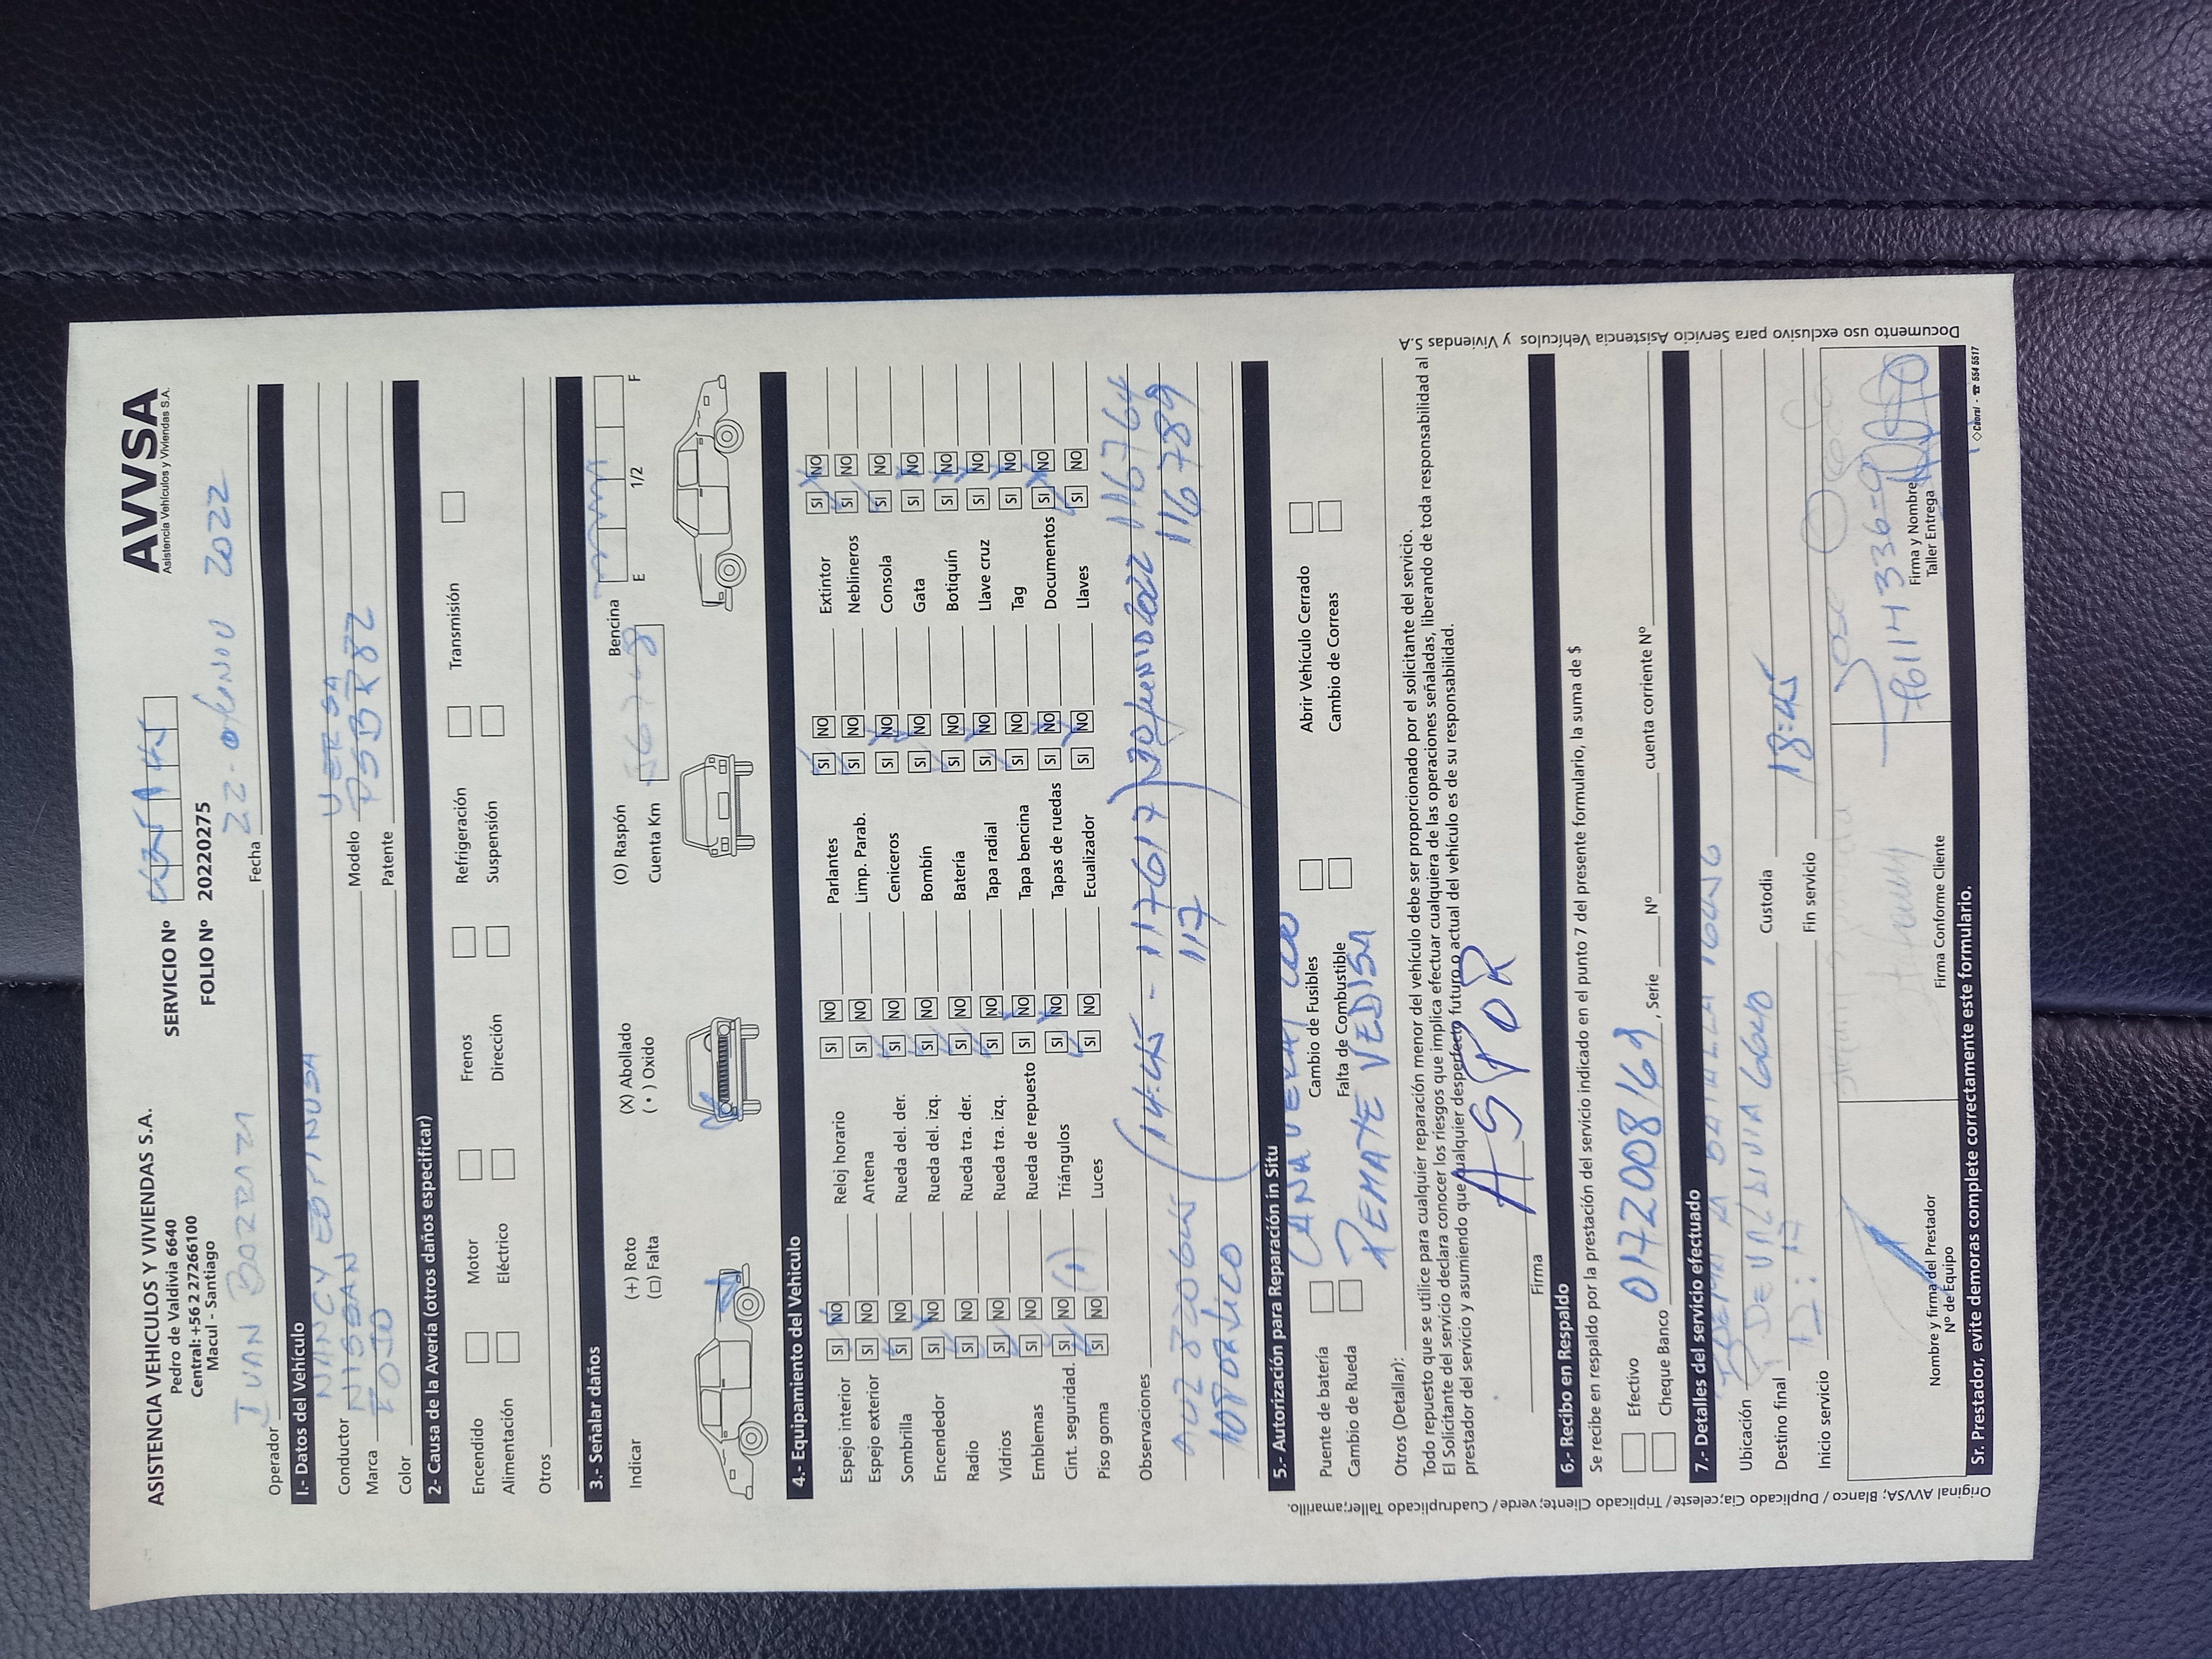 ASISTENCIA VEHICULOS Y VIVIENDAS S.A.
Pedro de Valdivia 6640
Central: +56 2 27266100
Macul - Santiago
SERVICIO Nº
FOLIO Nº 20220275
AVVSA
Asistencia Vehículos y Viviendas S.A.
Operador IVAN Fecha 22 - 2022
1.- Datos del Vehículo
Conductor NANCY ESPINOSA
Marca NISSAN Modelo VERSA
Color ROJO Patente
2- Causa de la Avería (otros daños especificar)
Encendido Motor Frenos Refrigeración Transmisión
Alimentación Eléctrico Dirección Suspensión
Otros
3.- Señalar daños
Indicar (+) Roto (X) Abollado (O) Raspón Bencina E 1/2 F
(□) Falta ( • ) Oxido Cuenta Km
4.- Equipamiento del Vehiculo
Espejo interior SI NO Reloj horario SI NO Parlantes SI NO Extintor SI NO
Espejo exterior SI NO Antena SI NO Limp. Parab. SI NO Neblineros SI NO
Sombrilla SI NO Rueda del. der. SI NO Ceniceros SI NO Consola SI NO
Encendedor SI NO Rueda del. izq. SI NO Bombín SI NO Gata SI NO
Radio SI NO Rueda tra. der. SI NO Batería SI NO Botiquín SI NO
Vidrios SI NO Rueda tra. izq. SI NO Tapa radial SI NO Llave cruz SI NO
Emblemas SI NO Rueda de repuesto SI NO Tapa bencina SI NO Tag SI NO
Cint. seguridad. SI NO Triángulos SI NO Tapas de ruedas SI NO Documentos SI NO
Piso goma SI NO (1) Luces SI NO Ecualizador SI NO Llaves SI NO
Observaciones (14:45 - 117617) 116764
117 116789
5.- Autorización para Reparación in Situ
Puente de batería Cambio de Fusibles Abrir Vehículo Cerrado
Cambio de Rueda Falta de Combustible Cambio de Correas
REMATE VEDISA
Otros (Detallar):
Todo repuesto que se utilice para cualquier reparación menor del vehículo debe ser proporcionado por el solicitante del servicio.
El Solicitante del servicio declara conocer los riesgos que implica efectuar cualquiera de las operaciones señaladas, liberando de toda responsabilidad al
prestador del servicio y asumiendo que cualquier desperfecto futuro o actual del vehículo es de su responsabilidad.
Firma
6.- Recibo en Respaldo
Se recibe en respaldo por la prestación del servicio indicado en el punto 7 del presente formulario, la suma de $
Efectivo 0172008169
Cheque Banco , Serie Nº cuenta corriente Nº
7.- Detalles del servicio efectuado
Ubicación
Destino final P DE VALDIVIA 6640 Custodia
Inicio servicio Fin servicio 18:45
Nombre y firma del Prestador
Nº de Equipo
Firma Conforme Cliente
Firma y Nombre
Taller Entrega
Sr. Prestador, evite demoras complete correctamente este formulario.
Original AVVSA; Blanco / Duplicado Cia;celeste / Triplicado Cliente;verde / Cuadruplicado Taller;amarillo.
Documento uso exclusivo para Servicio Asistencia Vehículos y Viviendas S.A